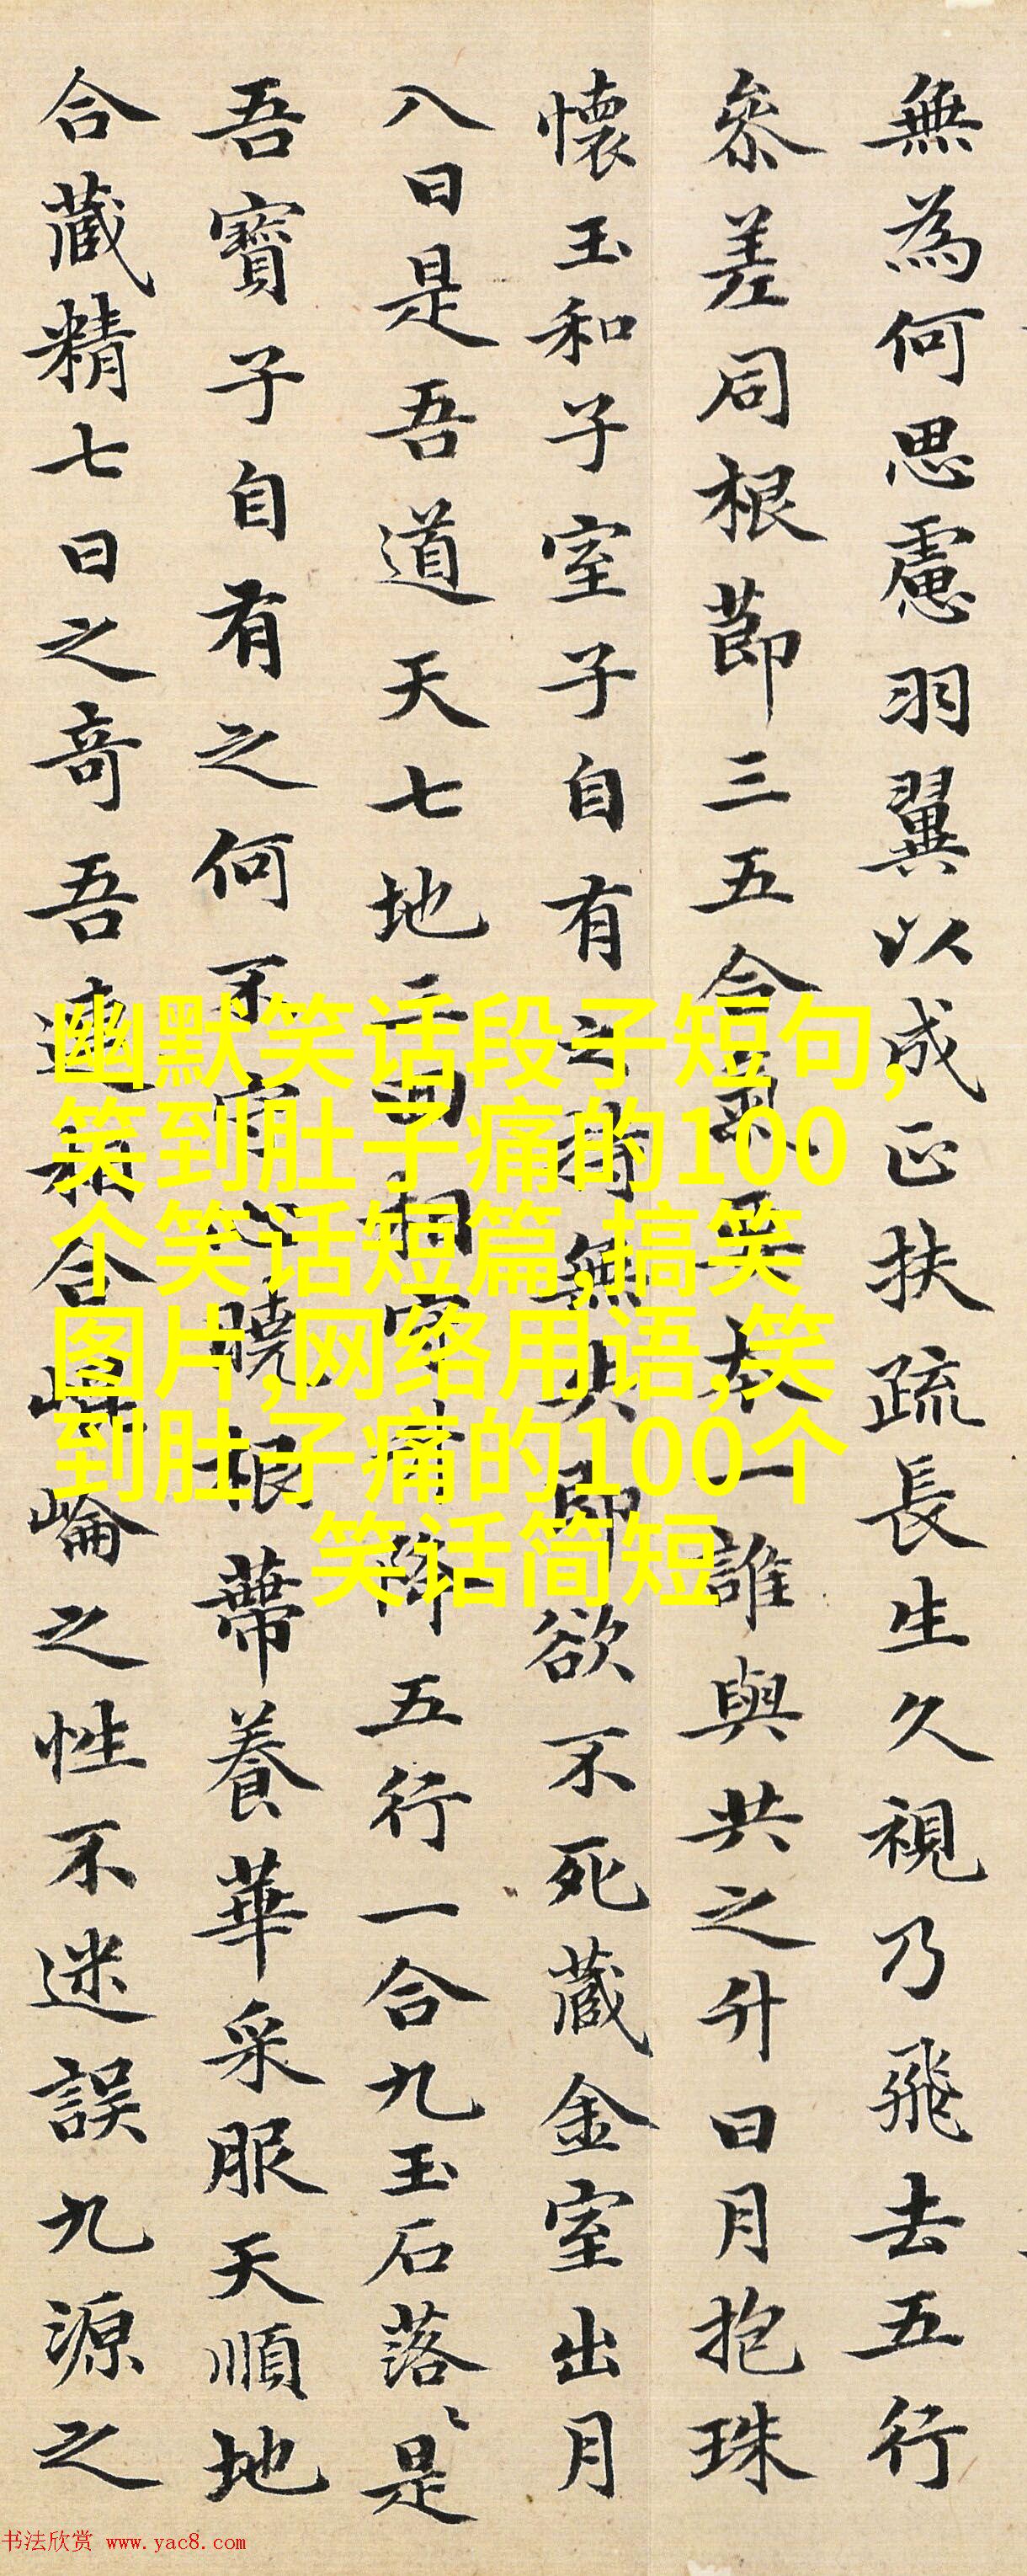 無為何思慮羽翼以成正扶疏長生久視乃飛去五行
參差同根節三五合氣要本一誰與共之升日月抱珠
懷玉和子室子自有之持無失即欲不死藏金室出月
入日是吾道天七地三回相守升降五行一合九玉石落〻是
吾寶子自有之何不守心曉根蔕養華采服天順地
合藏精七日之奇吾連相合崐崘之性不迷誤九源之
幽默笑话段子短句,
笑到肚子痛的100
个笑话短篇,搞笑
图片,网络用语,笑
到肚子痛的100个
笑话简短
书法欣赏 www.yac8.com